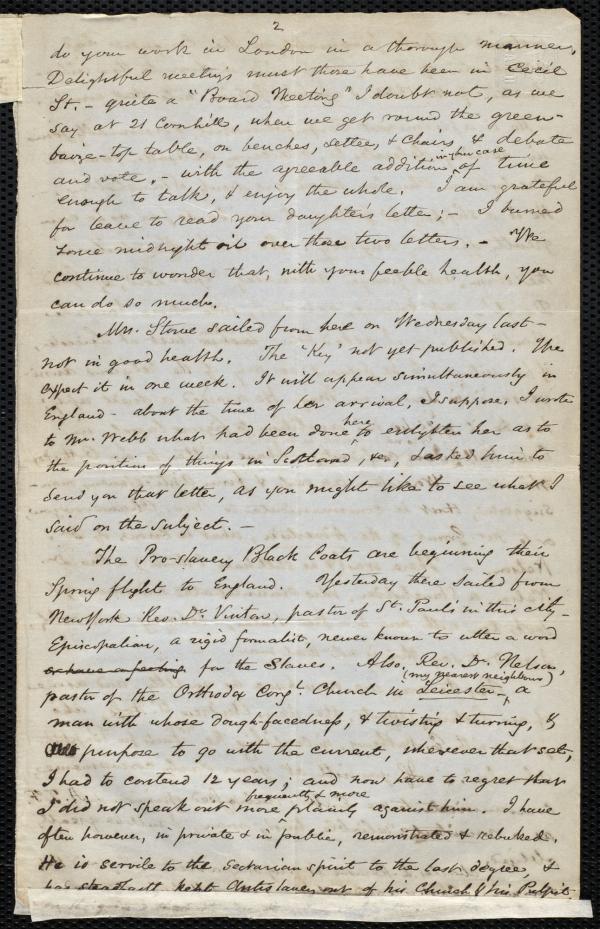 2
do your work in London in a thorough manner.
Delightful meetings must those have been in Cecil
St. - quite a "Board Meeting" I doubt not, as we
say at 21 Cornhill, when we get round the green-
baize-top table, on benches, settee, & chairs, & debate
and vote, - with the agreeable addition in your case of time
enough to talk, & enjoy the whole. I am grateful
for leave to read your daughter's letter; - I burned
some midnight oil over those two letters. - We
continue to wonder that, with your feeble health, you
can do so much.
Mrs. Stowe sailed from here on Wednesday last -
not in good health. The "Key" not yet published. We
expect it in one week. It will appear simultaneously in
England - about the time of her arrival, I suppose. I wrote
to Mr. Webb what had been done here to enlighten her as to
the position of things in Scotland, &c., & asked him to
send you that letter, as you might like to see what I
said on the subject. -
The Pro-slavery Black Coats are beginning their
Spring flight to England. Yesterday there sailed from
New York Rev. Dr. Vinton, pastor of St. Paul's in this city -
Episcopalian, a rigid formalist, never known to utter a word
or have a feeling for the Slaves. Also, Rev. Dr. Nelson,
(my nearest neighbour)
pastor of the Orthodox Congl. Church in Leicester - a
man with whose dough-facedness, & twistings & turning, &
purpose to go with the current, wherever that sets,
I had to contend 12 years; and now have to regret that
I did not speak out frequently & more more plainly against him. I have
often however, in private & in public, remonstrated & rebuked.
He is servile to the sectarian spirit to the last degree, &
has steadfastly kept Antislavery out of his Church & his Pulpit.